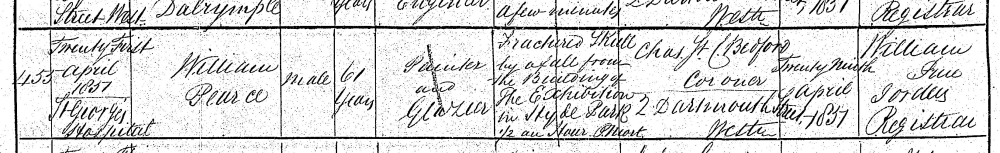 Street West Dalrymple years Engineer a few minutes 2 Dartmouth Westr 1851 Registrar
455
Twenty First
April
1851
St George's
Hospital
William
Pearce
male
61
Years
Painter
and
Glazier
Fractured Skull
by a fall from
the Building of
The Exhibition
in Hyde Park
½ an Hour P Mort
Chas. St C. Bedford
Coroner
2 Dartmouth Street
Westr
Twenty Ninth
April
1851
William
True
Jorden
Registrar